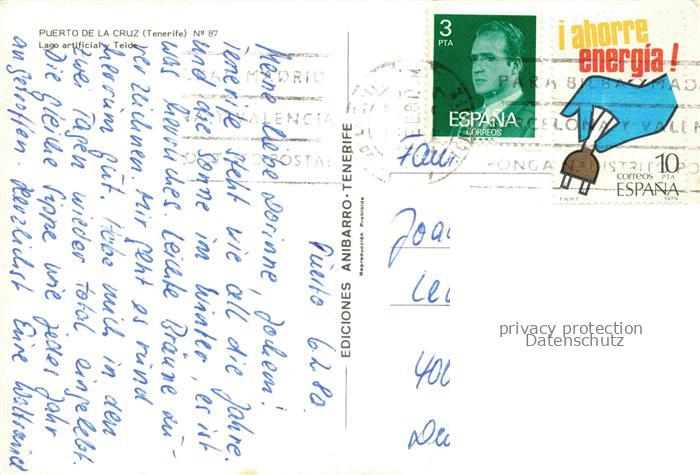 PUERTO DE LA CRUZ (Tenerife) Nº 87
Lago artificial y Teide
Puerto 6.2.80.
Meine liebe Dorinne, Jochem!
Tenerife steht wie all die Jahre.
und die Sonne im Winter, es ist
was herrliches. Leichte Bräune zu-
verzeichnen. Mir geht es rund
herum gut. Habe mich in den
zwei Tagen wieder total eingelebt.
Die gleiche Gruppe wie jedes Jahr
angetroffen. Herzlichst Eure Waltraud
EDICIONES ANIBARRO - TENERIFE
Reproducción Prohibida
3
PTA
ESPAÑA
CORREOS
F.N.M.T.
¡ahorre
energía!
10
CORREOS PTA
ESPAÑA
F.N.M.T. 1979
MADRID
VALENCIA
POSTAL
PARA BILBAO MAD
BARCELONA Y VALEN
PONGA Nº DISTRITO PO
Fam
Joa
400
privacy protection
Datenschutz